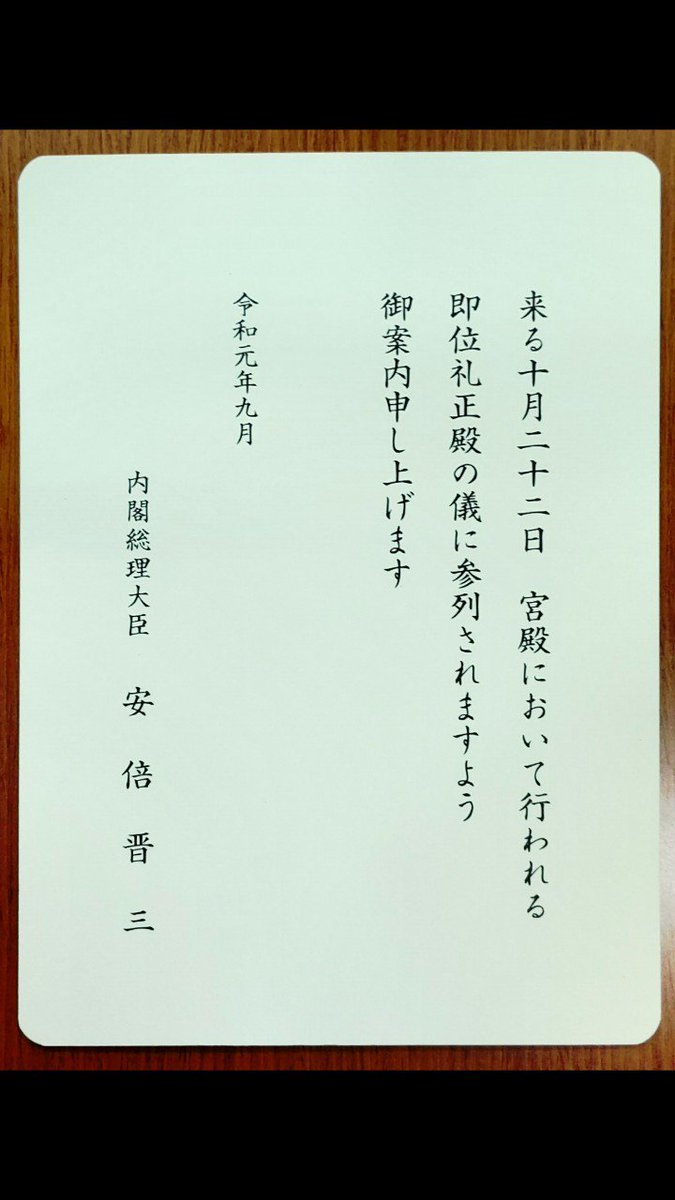 来る十月二十二日　宮殿において行われる
即位礼正殿の儀に参列されますよう
御案内申し上げます
令和元年九月
内閣総理大臣　安倍晋三